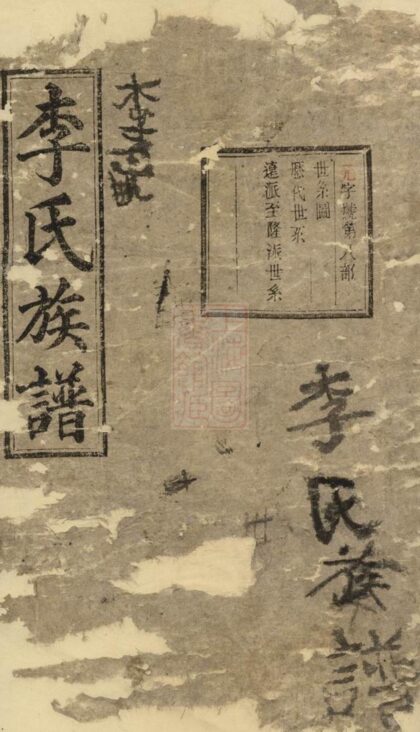 元字號第八部
世系圖
歷代世系
遠派至隆派世系
李氏族譜
李氏族譜